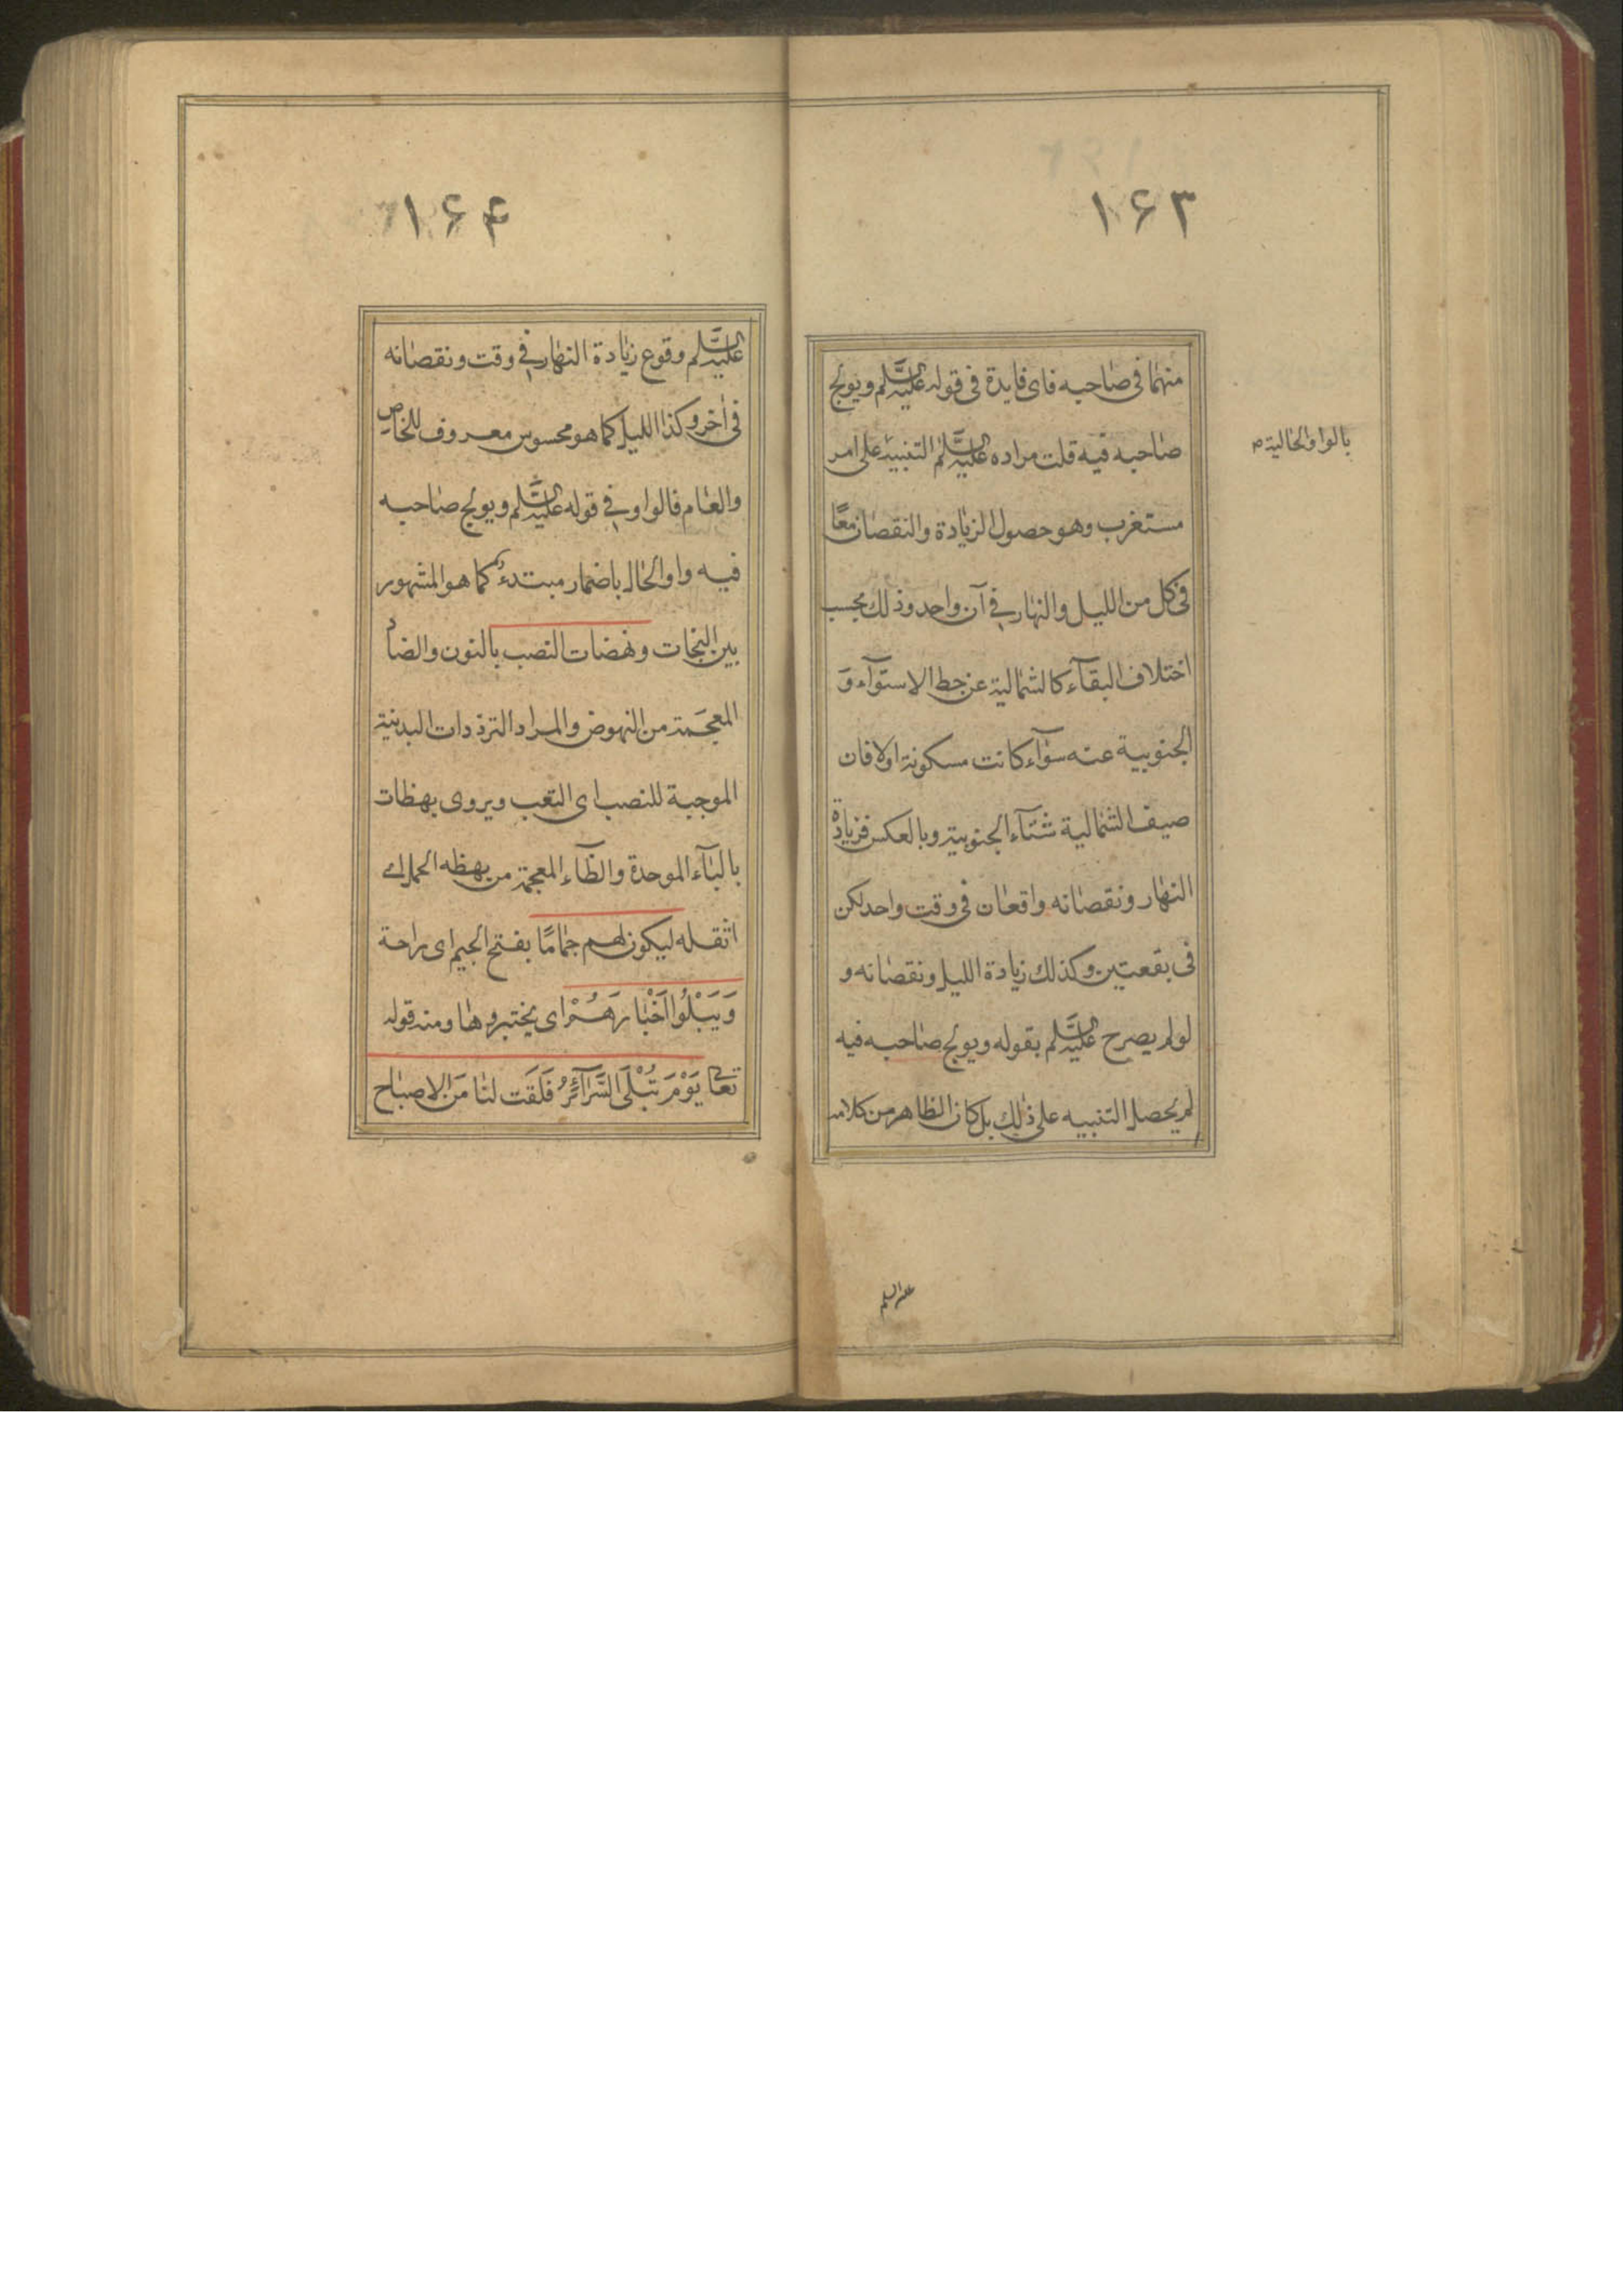 ۱۶۳
منهما فی صاحبه فای فایدة فی قوله علیه السّلم ویولج
صاحبه فیه قلت مراده علیه السّلم التنبیه علی امر
بالواو الحالیة
مستغرب وهو حصول الزیادة والنقصان معًا
فی کل من اللیل والنهار فی آن واحد وذلك بحسب
اختلاف البقآء کالشمالیة عن خط الاستوآء وَ
الجنوبیة عنه سوآء کانت مسکونة اولا فان
صیف الشمالیة شتآء الجنوبیة وبالعکس فزیادة
النهار ونقصانه واقعان فی وقت واحد لکن
فی بقعتین وکذلك زیادة اللیل ونقصانه و
لو لم یصرح علیه السّلم بقوله ویولج صاحبه فیه
لم یحصل التنبیه علی ذلك بل کان الظاهر من کلامه
علیه السلم
۱۶۴
علیه السّلم وقوع زیادة النهار فی وقت ونقصانه
فی اخر وکذا اللیل کما هو محسوس معروف للخاص
والعام فالواو فی قوله علیه السّلم ویولج صاحبه
فیه واو الحال باضمار مبتدء کما هو المشهور
بین النحات ونهضات النصب بالنون والضاد
المعجمة من النهوض والمراد الترددات البدنیة
الموجبة للنصب ای التعب ویروی بهظات
بالبآء الموحدة والظآء المعجمة من بهظه الحمل ای
اثقله لیکون لهم جمامًا بفتح الجیم ای راحة
وَیَبْلُوا اَخْبارَهُمْ ای یختبروها ومنه قوله
تعالی یَوْمَ تُبْلَی السَّرآئِرُ فَلَقَت لنا مَن الاصباح